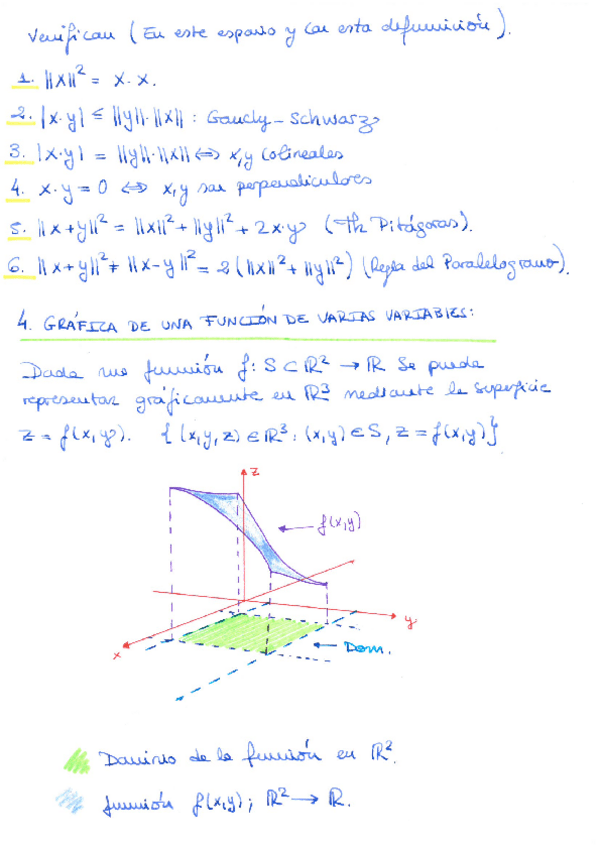 Verifican (En este espacio y con esta definición).
1. ||x||² = x·x.
2. |x·y| ≤ ||y||·||x|| : Gauchy-Schwarz
3. |x·y| = ||y||·||x|| ⇔ x,y colineales
4. x·y = 0 ⇔ x,y son perpendiculares
5. ||x+y||² = ||x||² + ||y||² + 2x·y (Th Pitágoras).
6. ||x+y||² + ||x-y||² = 2(||x||² + ||y||²) (Regla del Paralelogramo).
4. GRÁFICA DE UNA FUNCIÓN DE VARIAS VARIABLES:
Dada una función f: S ⊂ ℝ² → ℝ Se puede
representar gráficamente en ℝ³ mediante la superficie
z = f(x,y). {(x,y,z) ∈ ℝ³ : (x,y) ∈ S, z = f(x,y)}
z
f(x,y)
y
Dom.
x
Dominio de la función en ℝ².
función f(x,y); ℝ² → ℝ.